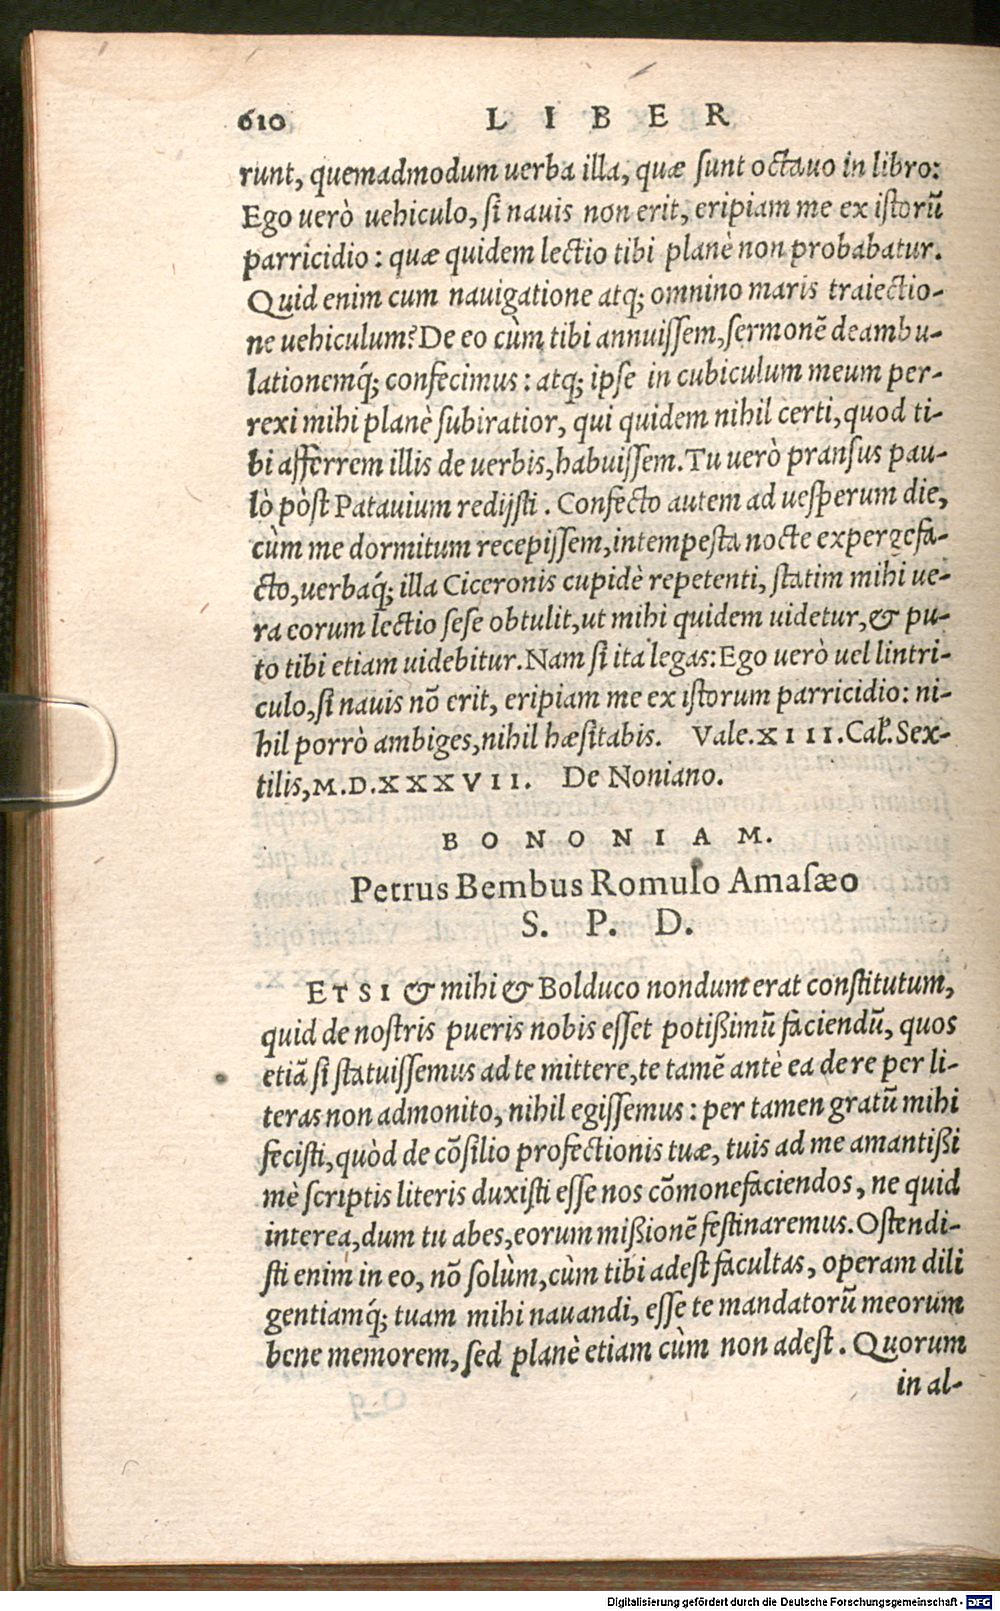 610 LIBER
runt, quemadmodum uerba illa, quæ sunt octauo in libro:
Ego uerò uehiculo, si nauis non erit, eripiam me ex istorũ
parricidio: quæ quidem lectio tibi planè non probabatur.
Quid enim cum nauigatione atq; omnino maris traiectio-
ne uehiculum? De eo cùm tibi annuissem, sermonẽ deambu-
lationemq́; confecimus: atq; ipse in cubiculum meum per-
rexi mihi planè subiratior, qui quidem nihil certi, quod ti-
bi afferrem illis de uerbis, habuissem. Tu uerò pransus pau-
lò pòst Patauium redijsti. Confecto autem ad uesperum die,
cùm me dormitum recepissem, intempesta nocte expergefa-
cto, uerbaq́; illa Ciceronis cupidè repetenti, statim mihi ue-
ra eorum lectio sese obtulit, ut mihi quidem uidetur, & pu-
to tibi etiam uidebitur. Nam si ita legas: Ego uerò uel lintri-
culo, si nauis nõ erit, eripiam me ex istorum parricidio: ni-
hil porrò ambiges, nihil hæsitabis. Vale. XIII. Cal. Sex-
tilis, M.D.XXXVII. De Noniano.
BONONIAM.
Petrus Bembus Romulo Amasæo
S. P. D.
ETSI & mihi & Bolduco nondum erat constitutum,
quid de nostris pueris nobis esset potißimũ faciendũ, quos
etiã si statuissemus ad te mittere, te tamẽ antè ea de re per li-
teras non admonito, nihil egissemus: per tamen gratũ mihi
fecisti, quòd de cõsilio profectionis tuæ, tuis ad me amantißi
mè scriptis literis duxisti esse nos cõmonefaciendos, ne quid
interea, dum tu abes, eorum mißionẽ festinaremus. Ostendi-
sti enim in eo, nõ solùm, cùm tibi adest facultas, operam dili
gentiamq́; tuam mihi nauandi, esse te mandatorũ meorum
bene memorem, sed planè etiam cùm non adest. Quorum
in al-
Digitalisierung gefördert durch die Deutsche Forschungsgemeinschaft - DFG